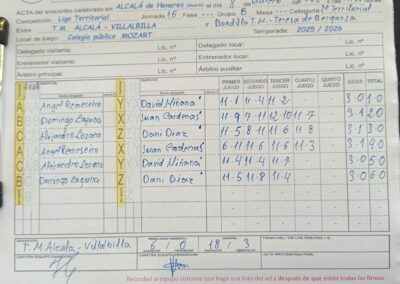 ACTA del encuentro celebrado en ALCALÁ de Henares el día 8 de
Competición Liga Territorial Jornada 15 Fase Grupo B Mesa Categoría 2ª Territorial
Entre T.M. ALCALÁ - VILLALBILLA y Boadilla T.M. - Teresa de Berganza
Lugar de juego: Colegio público MOZART Temporada: 2025 / 2026
Delegado visitante: Lic. nº Delegado local: Lic. nº
Entrenador visitante: Lic. nº Entrenador local: Lic. nº
Árbitro principal: Lic. nº Árbitro auxiliar Lic. nº
PRIMER JUEGO SEGUNDO JUEGO TERCER JUEGO CUARTO JUEGO QUINTO JUEGO JUEGOS TOTAL
A Angel Remeseiro Y David Miñana 11-1 11-4 11-2 3-0 1-0
B Domingo Laguna X Juan Cardenas 11-9 7-11 12-10 11-7 3-1 2-0
C Alejandro Lozano Z Dani Diaz 11-5 8-11 11-6 11-8 3-1 3-0
A Angel Remeseiro X Juan Cardenas 6-11 11-6 11-6 11-3 3-1 4-0
C Alejandro Lozano Y David Miñana 11-4 11-4 11-7 3-0 5-0
B Domingo Laguna Z Dani Diaz 11-5 11-8 11-4 3-0 6-0
T.M. Alcalá - Villalbilla 6 / 0 18 / 3
Recordad al equipo visitante que haga una foto del acta después de que estén todas las firmas